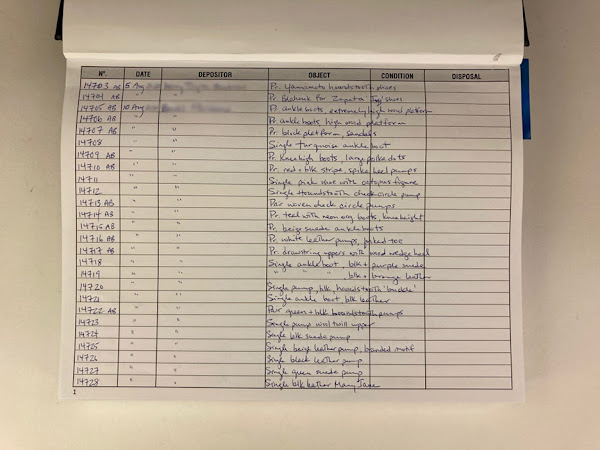 Nº. DATE DEPOSITOR OBJECT CONDITION DISPOSAL
14703 AB 5 Aug Pr. Yamamoto houndstooth shoes
14704 AB " Pr. Blahnik for Zapata shoes
14705 AB 10 Aug Pr. ankle boots, extremely high wood platform
14706 AB " " Pr. ankle boots, high wood platform
14707 AB " " Pr. black platform, sandals
14708 " " Single turquoise ankle boot
14709 AB " " Pr. Knee high boots, large polka dots
14710 AB " " Pr. red + blk stripe, spike heel pumps
14711 " " Single pink shoe with octopus figure
14712 " " Single Houndstooth check circle pump
14713 AB " " Pair woven check circle pumps
14714 AB " " Pr. teal with neon org boots, knee height
14715 AB " " Pr. beige suede ankle boots
14716 AB " " Pr. white leather pumps, toe
14717 AB " " Pr. drawstring uppers with wood wedge heel
14718 " " Single ankle boot, blk + purple suede
14719 " " " " " blk + orange leather
14720 " " Single pump, blk, houndstooth 'buckle'
14721 " " Single ankle boot blk leather
14722 AB " " Pair green + blk houndstooth pumps
14723 " " Single pump wool twill upper
14724 " " Single blk suede pump
14725 " " Single beige leather pump, banded motif
14726 " " Single black leather pump
14727 " " Single green suede pump
14728 " " Single blk leather Mary Jane